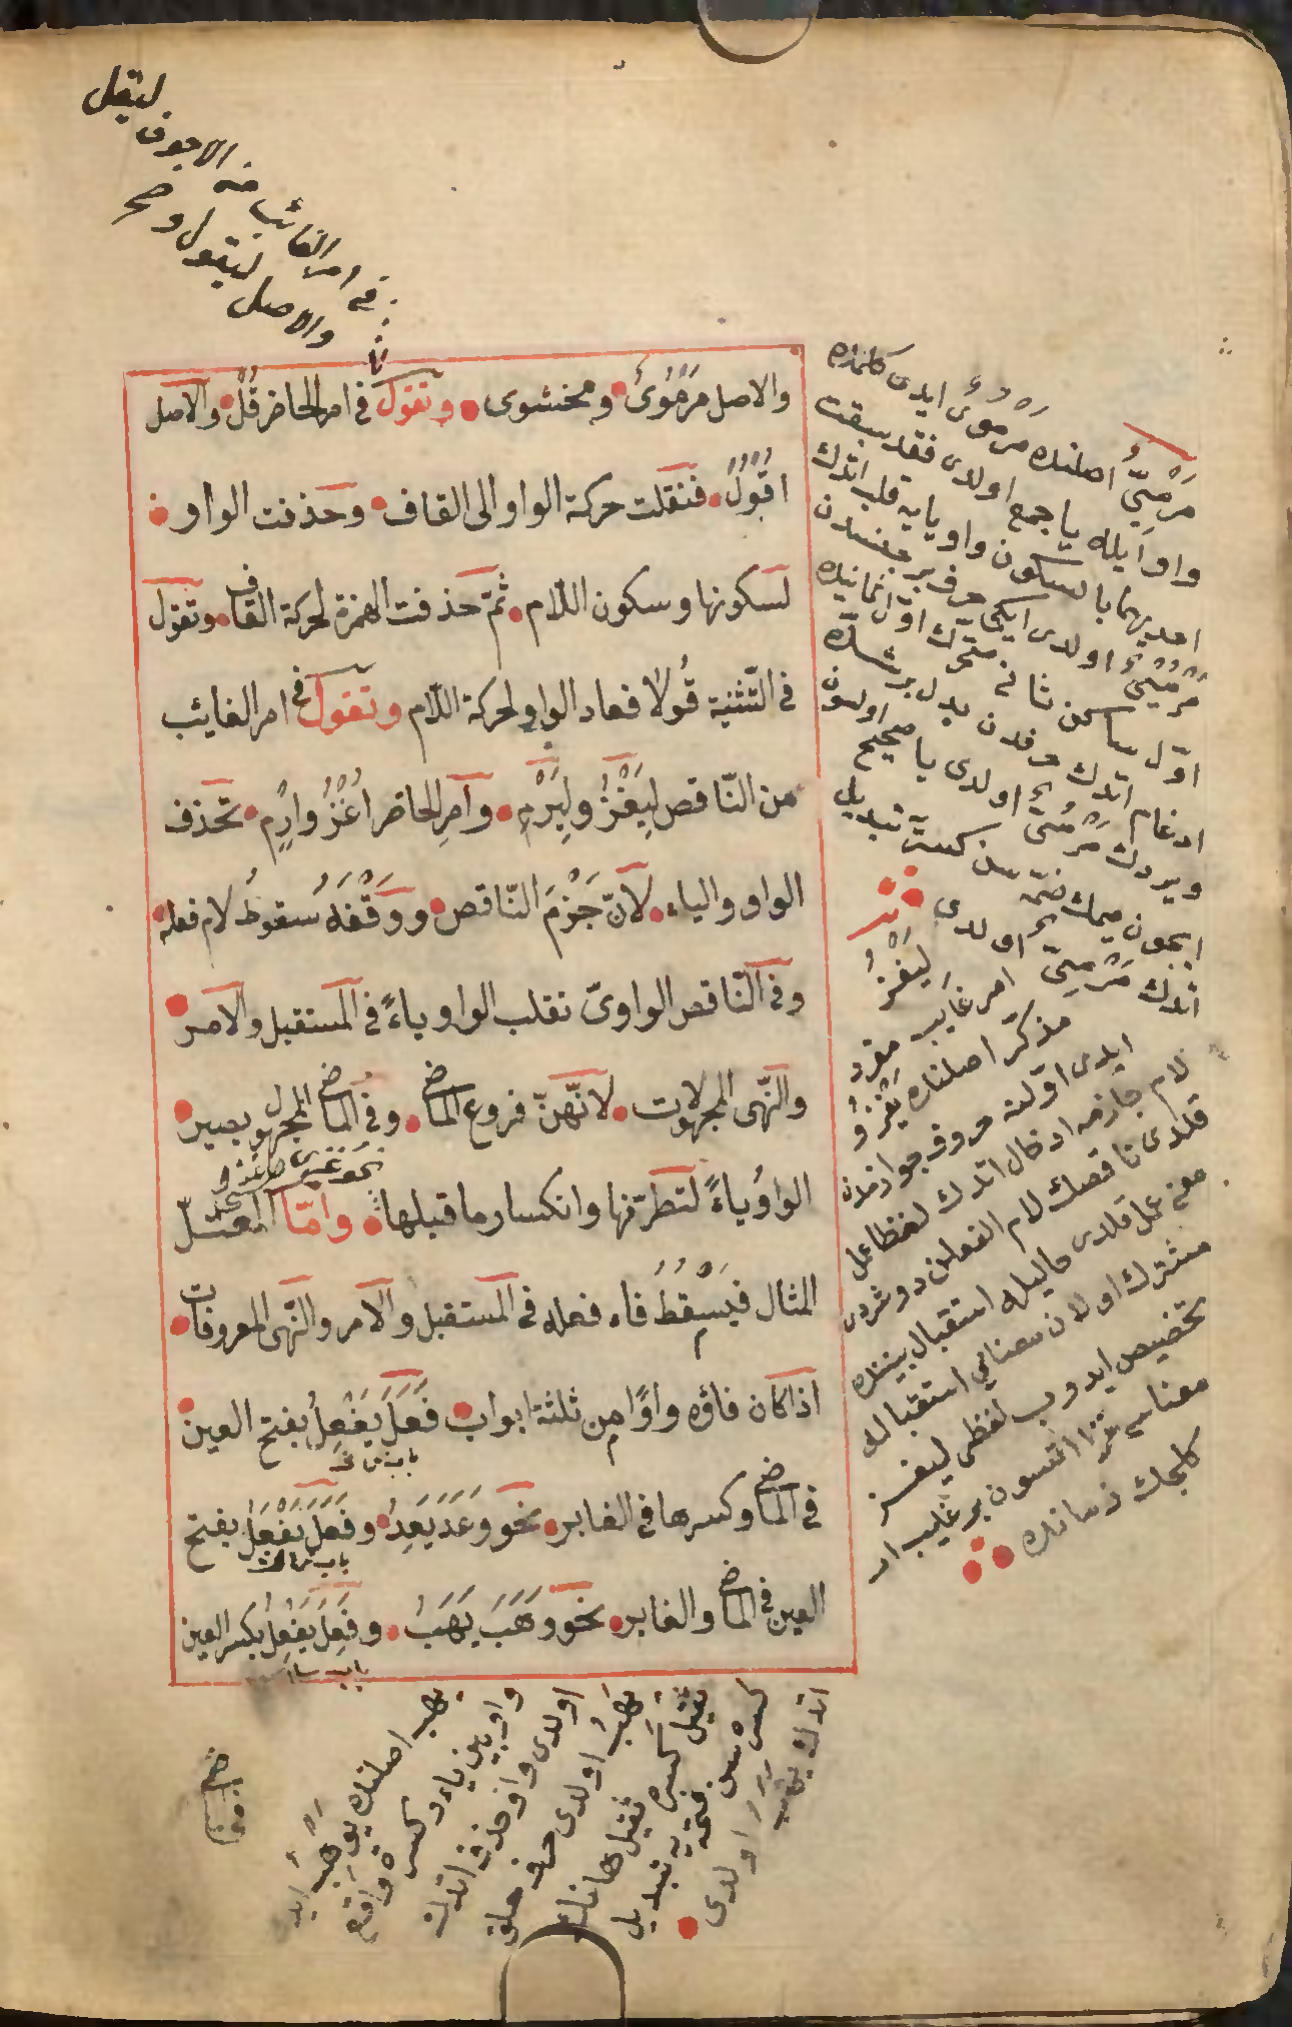 ليقل
في امر الغائب من الاجوف
والاصل ليقول وصح
والاصل مَرْمُوىٌ ومخشوى وتقول فى امر الحاضر قُلْ والاصل
اقْوُلْ فنقلت حركة الواو الى القاف وحذفت الواو
لسكونها وسكون اللام ثمّ حذفت الهمزة لحركة القاف وتقول
فى التّثنية قُولَا فعاد الواو لحركة اللّام وتقول فى امر الغايئب
من النّاقص لِيَغْزُ ولِيَرْمِ وامرِ الحاضر اُغْزُ وارْمِ تحذف
الواو والياء لانّ جَزْمَ النّاقص ووَقْفَهُ سقوطُ لام فعله
وفى النّاقص الواوىّ تقلب الواو ياءً فى المستقبل والامر
والنّهى المجهولات لانّهنّ فروع الماضى وفى الماضى المجهول يصير
نحو غزى
الواوُ ياءً لتطرّفها وانكسار ما قبلها وامّا المعتلّ
المثال فيَسْقُطُ فاء فعله فى المستقبل والامر والنّهى المعروفات
اذا كان فاؤه واوًا من ثلثة ابواب فَعَلَ يَفْعِلُ بفتح العين
باب ثانى
فى الماضى وكسرها فى الغابر نحو وَعَدَ يَعِدُ وفَعَلَ يَفْعَلُ بفتح
باب ثالث
العين فى الماضى والغابر نحو وَهَبَ يَهَبُ وفَعِلَ يَفْعِلُ بكسر العين
باب سادس
مَرْمِىٌّ اصلنده مَرْمُوىٌ ايدى كلمه‌ده
واو ايله يا جمع اولدى فقد سبقت
احديهما بالسكون واو يايه قلب اتدك
مَرْمُيْىٌ اولدى ايكى حرف بر جنسدن
اوّل ساكن ثانى متحرك اوّل ثانيده
ادغام اتدك حرفدن بدل بر شدّه
ويردك مَرْمُىٌّ اولدى يا صحيح اولسون
ايچون ميمك ضمّه سن كسره تبديل
اتدك مَرْمِىٌّ اولدى
لِيَغْزُ
امر غايب مفرد
مذكر اصلنده يَغْزُوُ
ايدى اوّلنه حروف جوازمدن
لام جازمه ادخال اتدك لفظا عمل
قلدى ناقصك لام الفعلن دوشردى
معنى عمل قلدى حاليله استقبال بيننده
مشترك اولان معنايى استقباله
تخصيص ايدوب لفظى ليغز
معناسى غزا اتسون بر غايب ار
كلجك زمانده
يهب اصلنده يَوْهِبُ ايدى
واو بين ياء وكسره واقع
اولدى واو حذف اتدك
يَهِبُ اولدى حرف حلق
ثقيل كسره ثقيل هانك
كسره سن فتحه‌يه تبديل
اتدك يهب اولدى